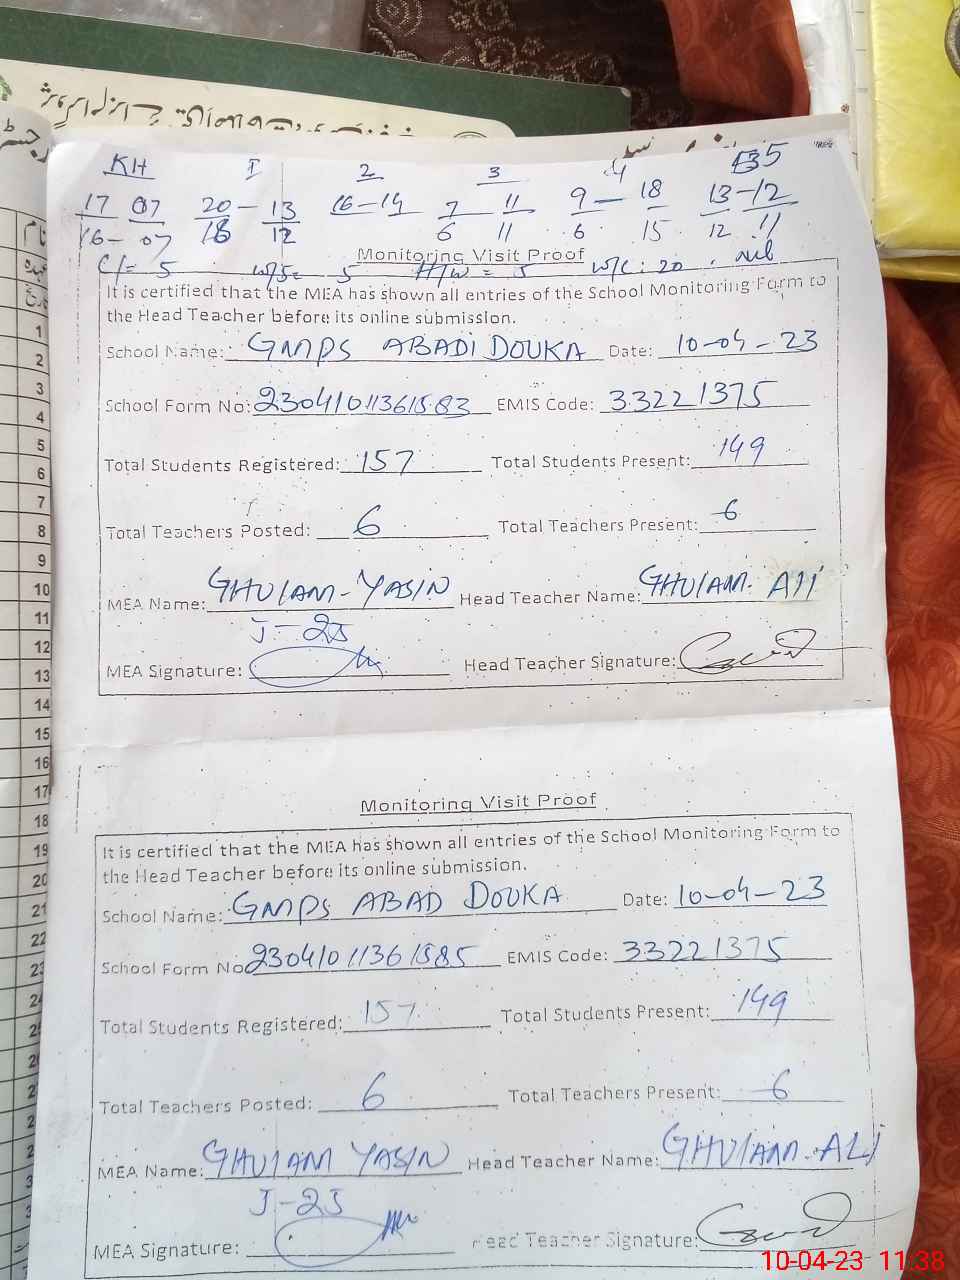 KH I 2 3 4 5
17 07 20 - 13 16-14 7 11 9 - 18 13-12
16- 07 18 12 6 11 6 15 12 11
Monitoring Visit Proof
C/= 5 w/s= 5 H/W = 5 W/C: 20 . nil
It is certified that the MEA has shown all entries of the School Monitoring Form to
the Head Teacher before its online submission.
School Name: GMPS ABADI DOUKA Date: 10-04-23
School Form No: 2304101136 EMIS Code: 33221375
Total Students Registered: 157 Total Students Present: 149
Total Teachers Posted: 6 Total Teachers Present: 6
MEA Name: GHULAM-YASIN Head Teacher Name: GHULAM. Ali
J-25
MEA Signature: Head Teacher Signature:
Monitoring Visit Proof
It is certified that the MEA has shown all entries of the School Monitoring Form to
the Head Teacher before its online submission.
School Name: GMPS ABAD DOUKA Date: 10-04-23
School Form No 23041011361585 EMIS Code: 33221375
Total Students Registered: 157 Total Students Present: 149
Total Teachers Posted: 6 Total Teachers Present: 6
MEA Name: GHULAM YASIN Head Teacher Name: GHULAM. ALI
J-25
MEA Signature: Head Teacher Signature:
10-04-23 11:38
نام
عہدہ
تاریخ
1
2
3
4
5
6
7
8
9
10
11
12
13
14
15
16
17
18
19
20
21
22
23